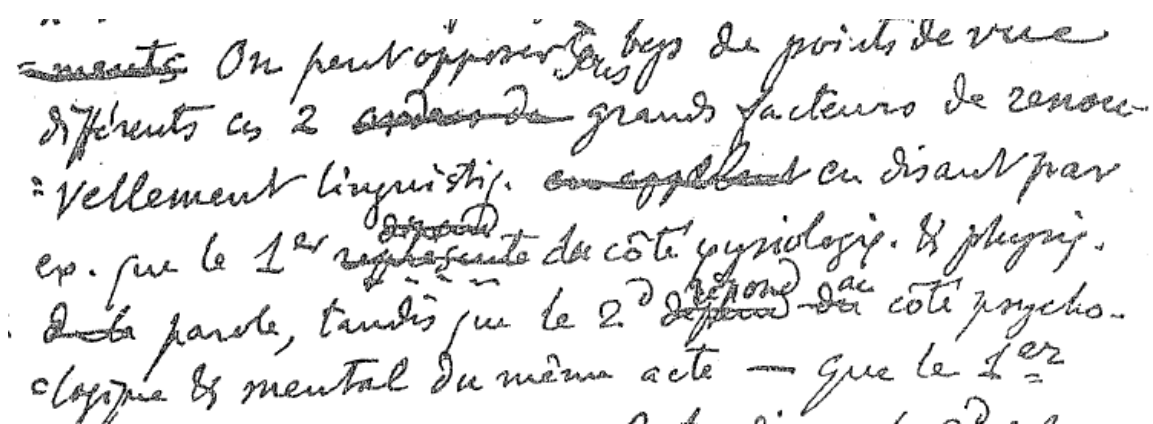 =ments On peut opposer sous bcp de points de vue
différents ces 2 grands facteurs de renou-
=vellement linguistiq. en disant par
ex. que le 1er représente du côté pysiologiq. & physiq.
de la parole, tandis que le 2d répond au côté psycho-
=logique & mental du même acte — que le 1er